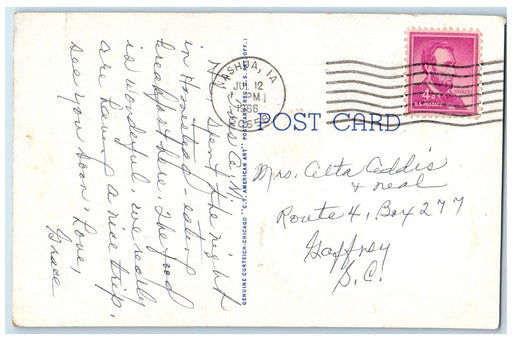 Hi, spent the night
in Homestead - eating
breakfast here. The food
is wonderful, we really
are having a nice trip.
see you soon. Love,
Grace
GENUINE CURTEICH-CHICAGO "C.T. AMERICAN ART" POST CARD (REG. U.S. PAT. OFF.)
NASHUA, IA
JUL 12
PM
1966
4¢
U.S. POSTAGE
POST CARD
Mrs. Alta Addis
& Neal
Route 4, Box 277
Gaffney
S.C.